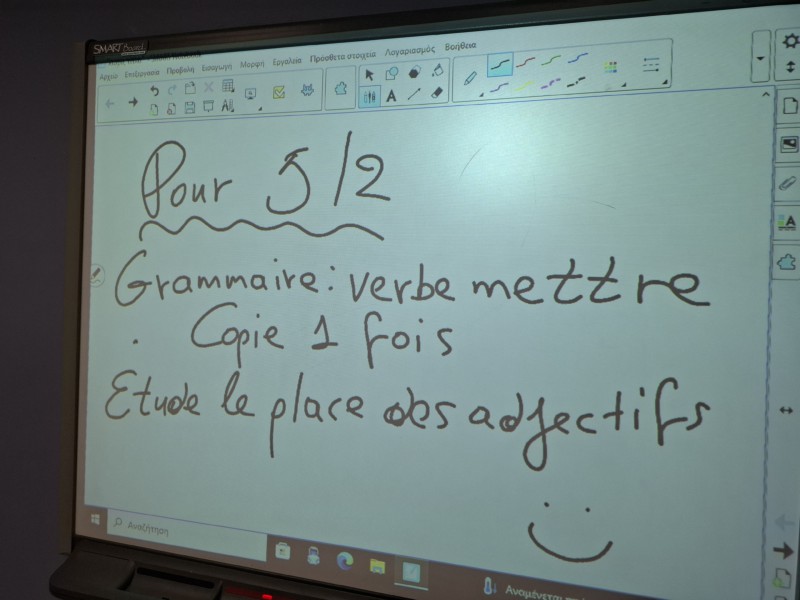 SMART Board
Αρχείο Επεξεργασία Προβολή Εισαγωγή Μορφή Εργαλεία Πρόσθετα στοιχεία Λογαριασμός Βοήθεια
Pour 5/2
Grammaire: verbe mettre
. Copie 1 fois
Etude le place des adjectifs
Αναζήτηση
Αναμένεται